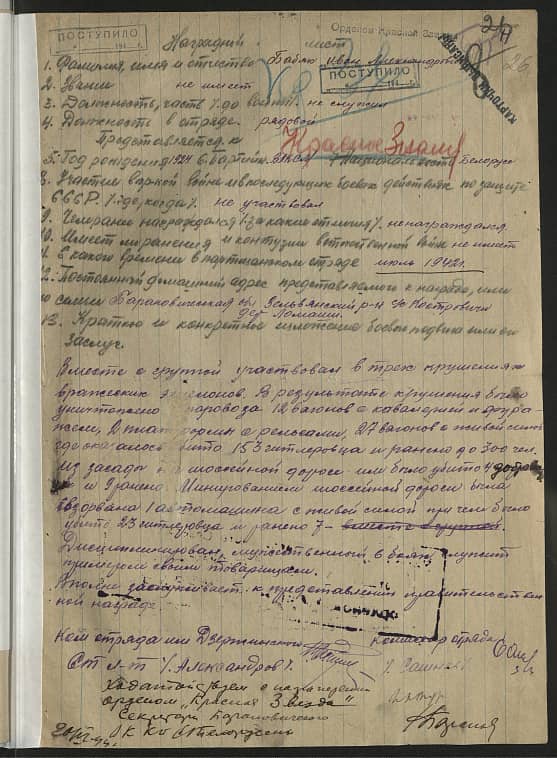 ПОСТУПИЛО
Орденом Красной Звезды
Наградной лист
1. Фамилия, имя и отчество Бабко Иван Александрович
ПОСТУПИЛО
2. Звание не имеет
3. Должность, часть /. до войны /. не служил
4. Должность в отряде. рядовой
Представляется к
Красное Знамя
5. Год рождения 1924 6. Партийн. 7. Национальность Белорус
8. Участие в и в последующих боевых действиях по защите
СССР /. где, когда /. не участвовал
9. Чем ранее награждался /. за какие отличия /. ненаграждался
10. Имеет ли ранения и контузии в отечественной войне не имеет
11. С какого времени в партизанском отряде июль 1942г.
12. Постоянный домашний адрес представляемого к награде, или
семьи Барановичская обл Зельвянский р-н с/с Костровичи
дер Ломаши.
13. Краткое и конкретное изложение боевого подвига или его
заслуг.
Вместе с группой участвовал в трех крушениях
вражеских эшелонов. В результате крушения было
уничтожено паровоза 12 вагонов с кавалерией и фура-
жем, с рельсами, 27 вагонов с живой силой
где оказалось убито 153 гитлеровца и ранено до 300 чел.
Из засады на шоссейной дороге ими было убито 4
и ранено. Минированием шоссейной дороги была
взорвана 1 автомашина с живой силой при чем было
убито 23 гитлеровца и ранено 7 вместе с группой.
Дисциплинирован, мужественный в боях, служит
примером своим товарищам.
Вполне заслуживает к представлению правительствен-
ной награде
Ком отряда им Дзержинского комиссар отряда
Ст л-т /. Александров /.
Ходатайствуем о награждении
орденом "Красная Звезда"
Секретарь Барановичского
ОК КП(б) Белоруссии